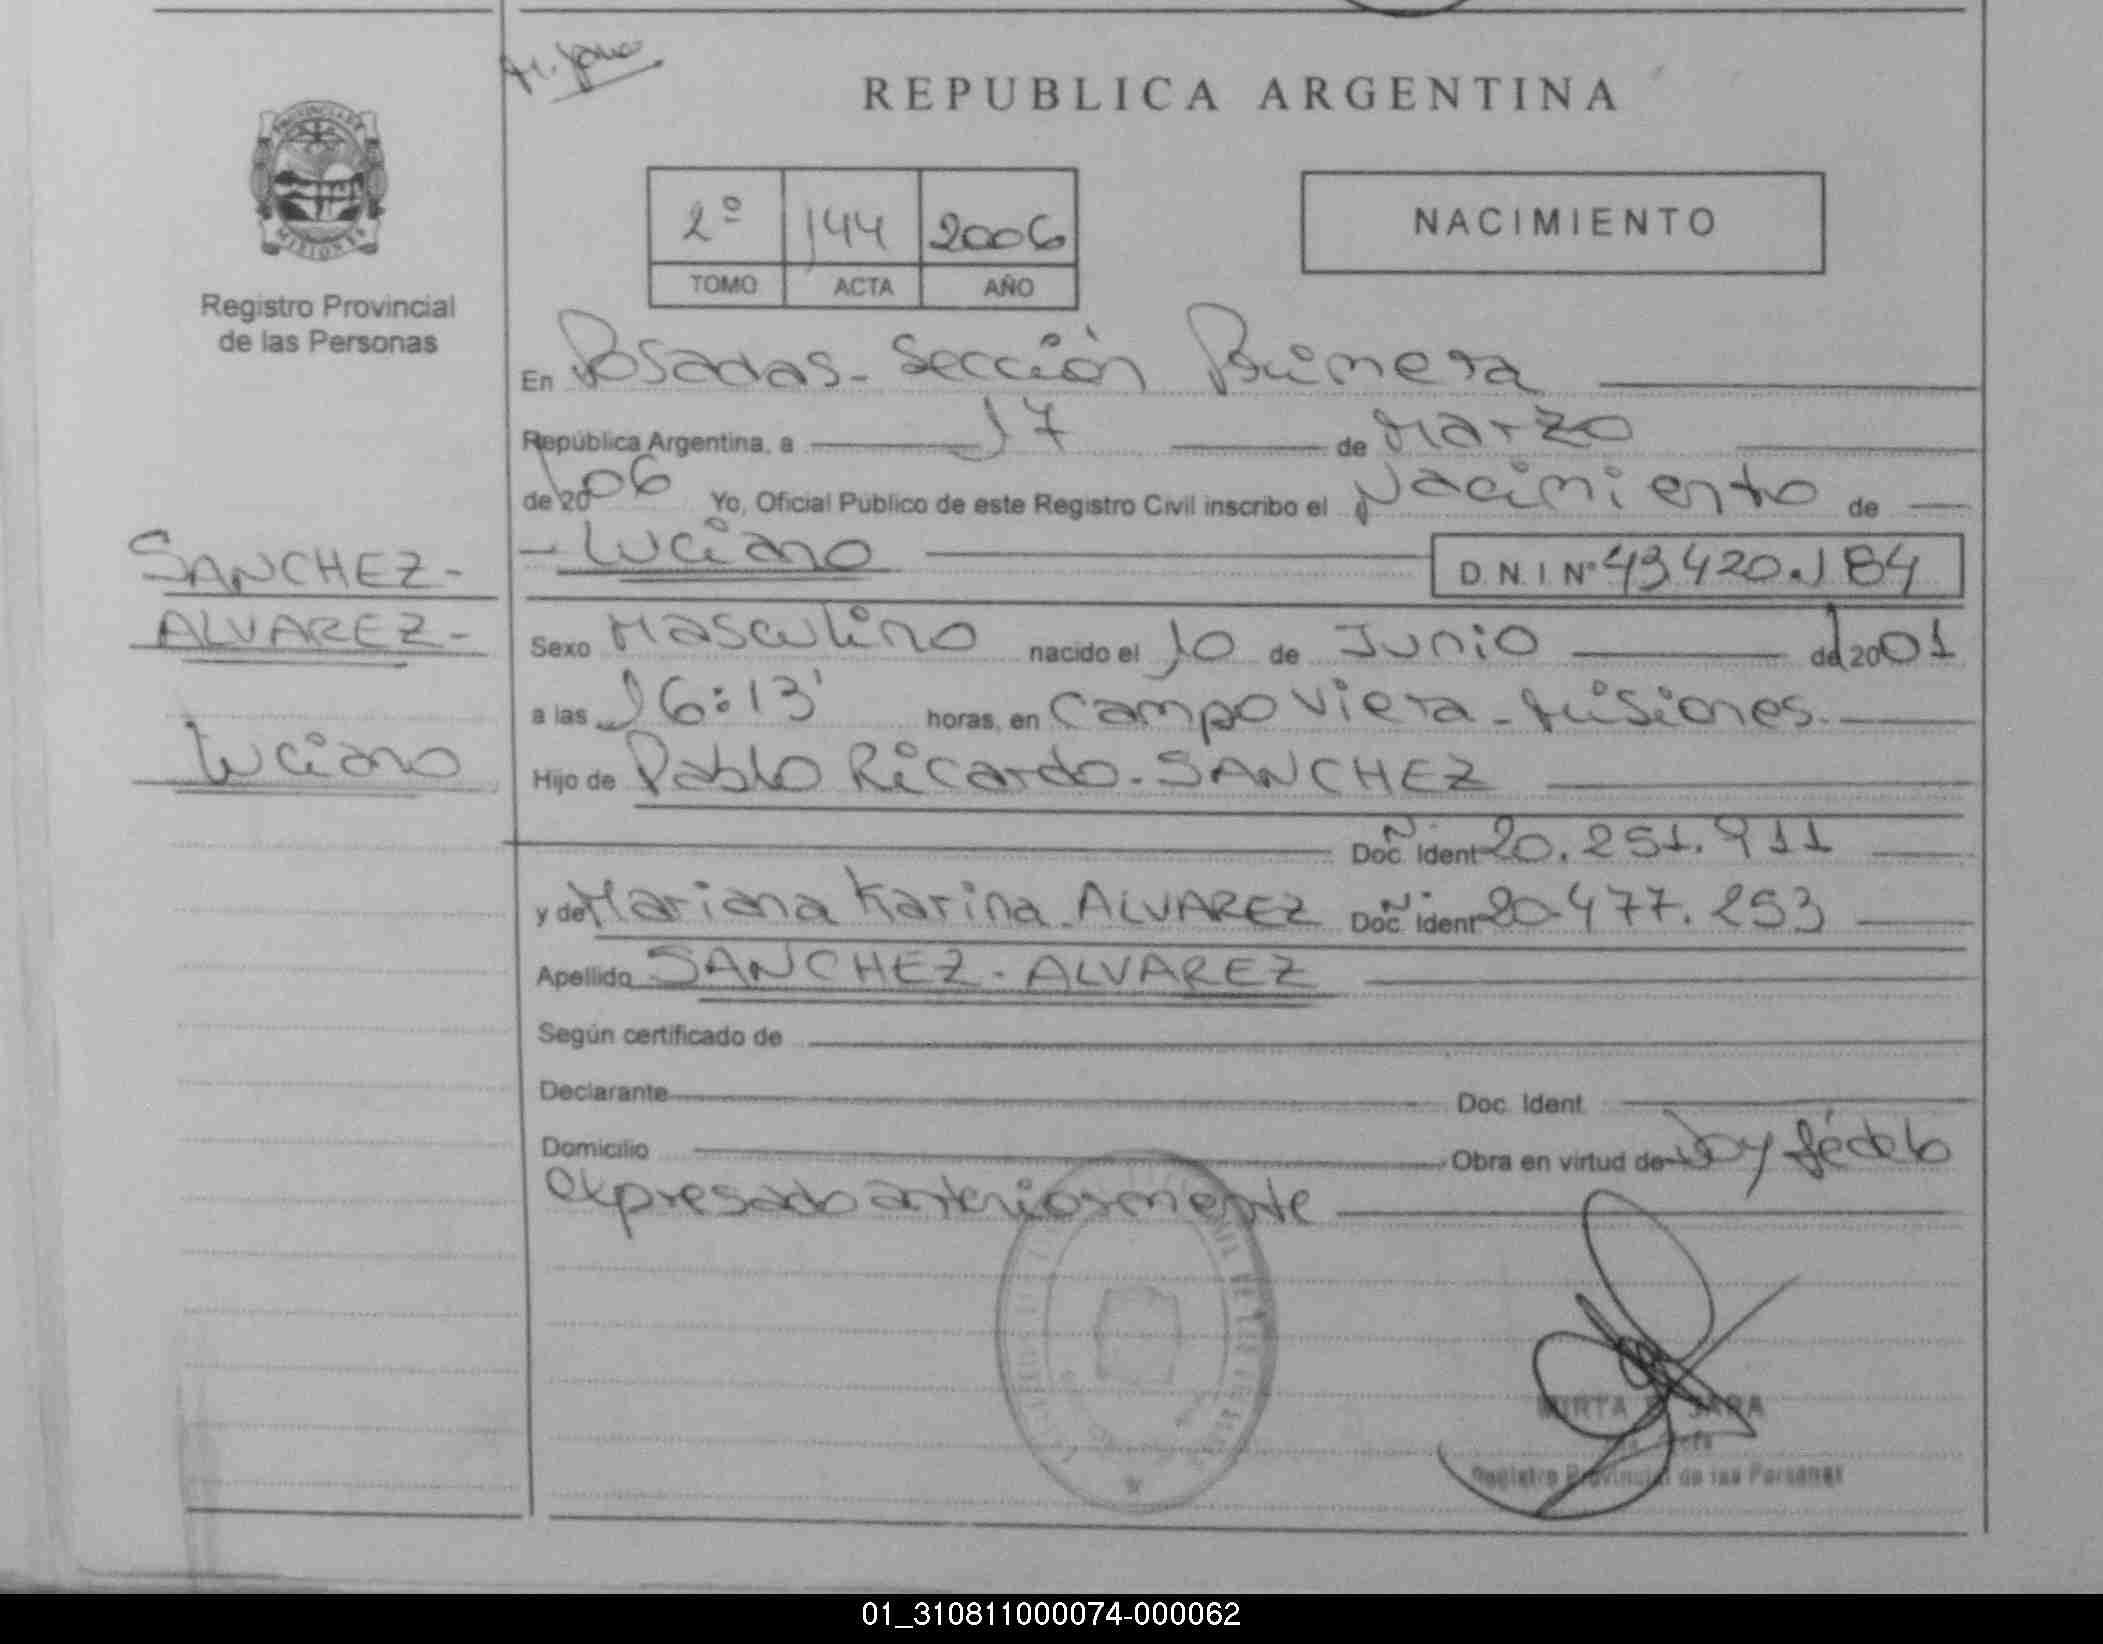 REPUBLICA ARGENTINA
PROVINCIA DE
MISIONES
Registro Provincial
de las Personas
2º 144 2006
TOMO ACTA AÑO
NACIMIENTO
En Posadas - Sección Primera
República Argentina, a 17 de Marzo
de 2006 Yo, Oficial Público de este Registro Civil inscribo el Nacimiento de
Luciano D.N.I Nº 43.420.184
SANCHEZ-
ALVAREZ-
Luciano
Sexo Masculino nacido el 10 de Junio de 2001
a las 16:13' horas, en Campo Viera - Misiones.
Hijo de Pablo Ricardo - SANCHEZ
Doc. Ident 20.251.911
y de Mariana Karina ALVAREZ Doc. Ident 20.477.253
Apellido SANCHEZ - ALVAREZ
Según certificado de
Declarante Doc. Ident.
Domicilio Obra en virtud de Doy fé de lo
expresado anteriormente
MIRTA SARA
Registro Provincial de las Personas
01_310811000074-000062